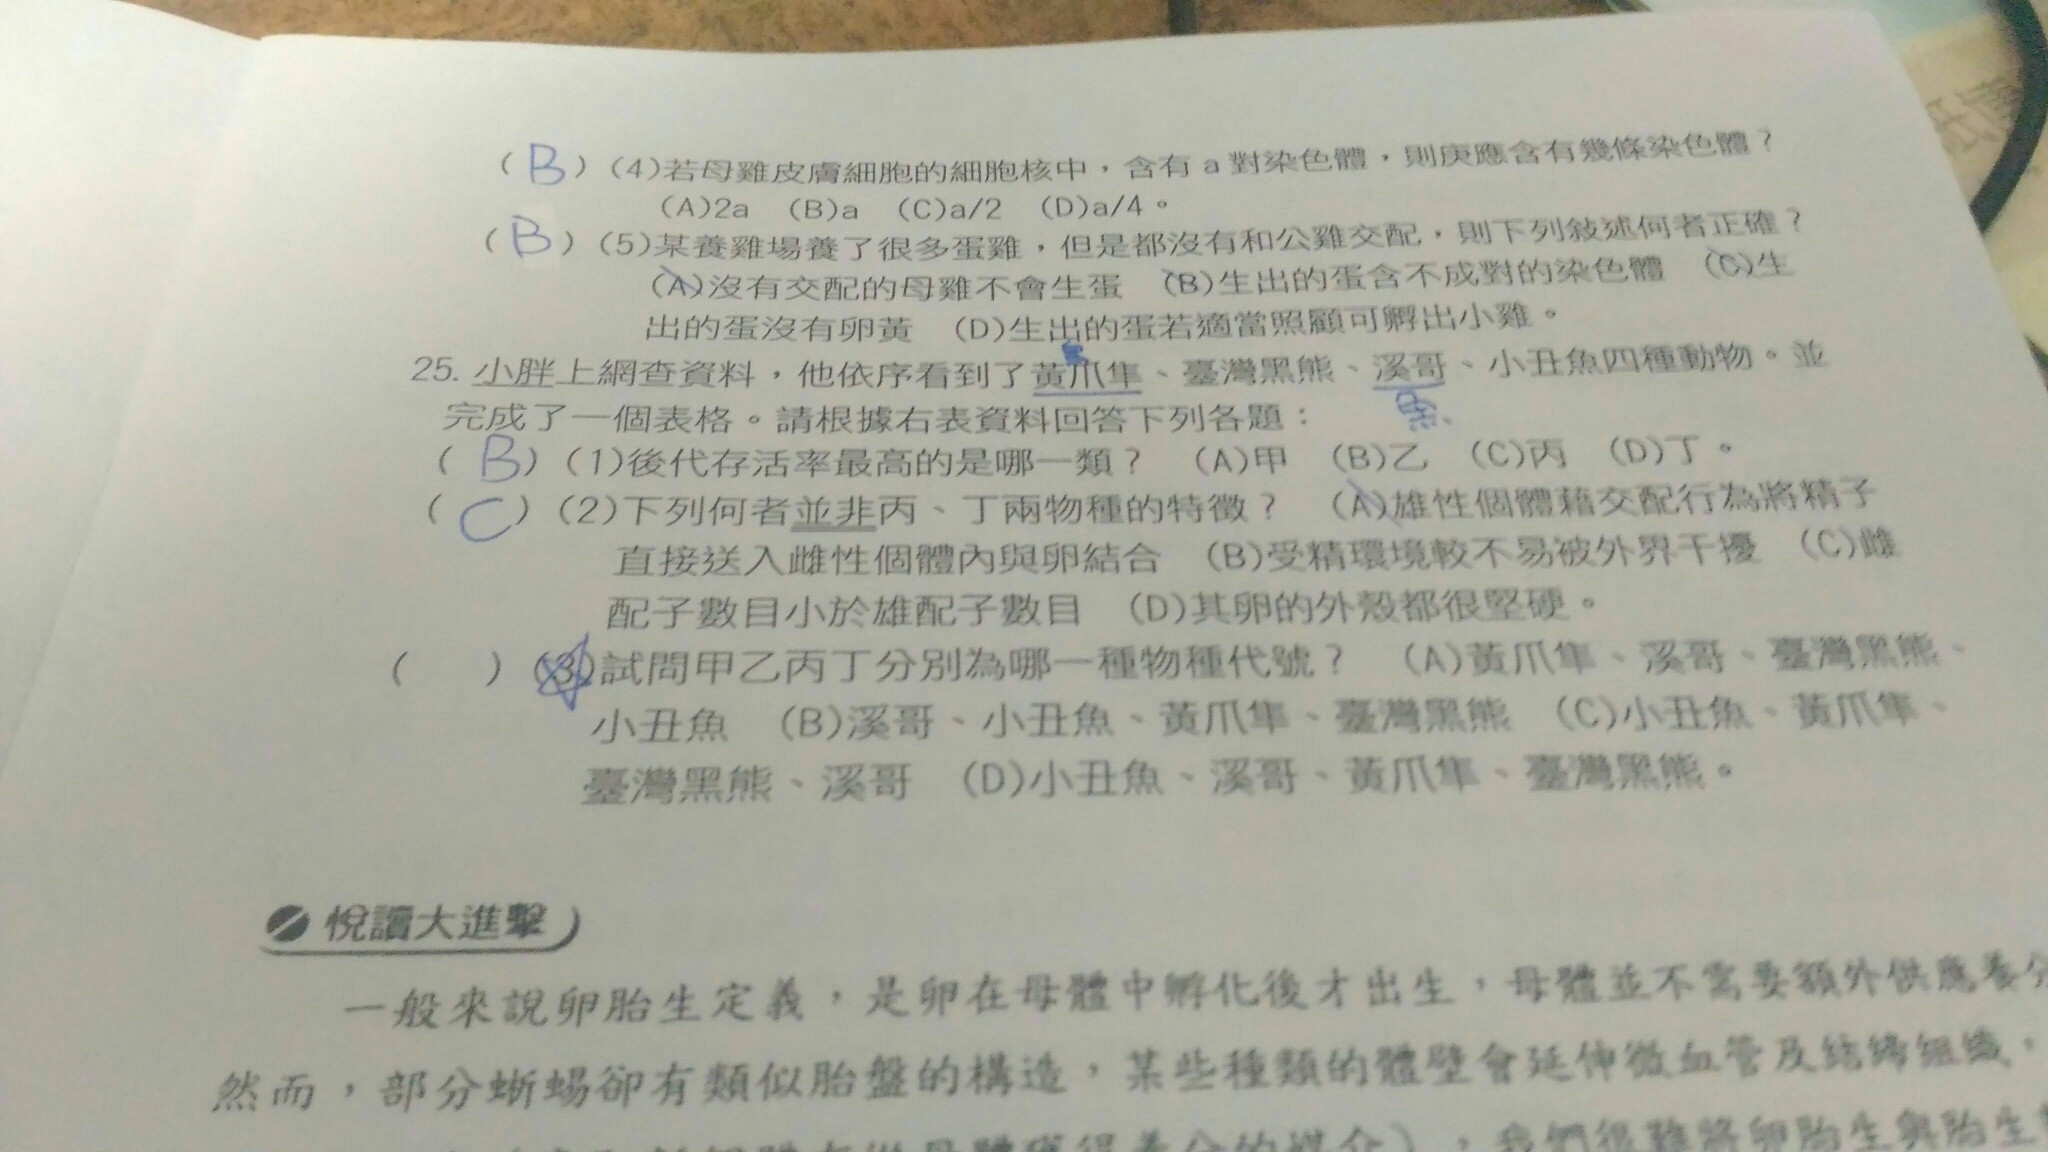 ( B ) (4)若母雞皮膚細胞的細胞核中，含有 a 對染色體，則庚應含有幾條染色體？
(A)2a (B)a (C)a/2 (D)a/4。
( B ) (5)某養雞場養了很多蛋雞，但是都沒有和公雞交配，則下列敘述何者正確？
(A)沒有交配的母雞不會生蛋 (B)生出的蛋含不成對的染色體 (C)生
出的蛋沒有卵黃 (D)生出的蛋若適當照顧可孵出小雞。
25. 小胖上網查資料，他依序看到了黃爪隼、臺灣黑熊、溪哥、小丑魚四種動物。並
魚
完成了一個表格。請根據右表資料回答下列各題：
( B ) (1)後代存活率最高的是哪一類？ (A)甲 (B)乙 (C)丙 (D)丁。
( C ) (2)下列何者並非丙、丁兩物種的特徵？ (A)雄性個體藉交配行為將精子
直接送入雌性個體內與卵結合 (B)受精環境較不易被外界干擾 (C)雌
配子數目小於雄配子數目 (D)其卵的外殼都很堅硬。
( ) (3)試問甲乙丙丁分別為哪一種物種代號？ (A)黃爪隼、溪哥、臺灣黑熊、
小丑魚 (B)溪哥、小丑魚、黃爪隼、臺灣黑熊 (C)小丑魚、黃爪隼、
臺灣黑熊、溪哥 (D)小丑魚、溪哥、黃爪隼、臺灣黑熊。
悅讀大進擊
一般來說卵胎生定義，是卵在母體中孵化後才出生，母體並不需要額外供應養分
然而，部分蜥蜴卻有類似胎盤的構造，某些種類的體壁會延伸微血管及結締組織，
我們很難將卵胎生與胎生